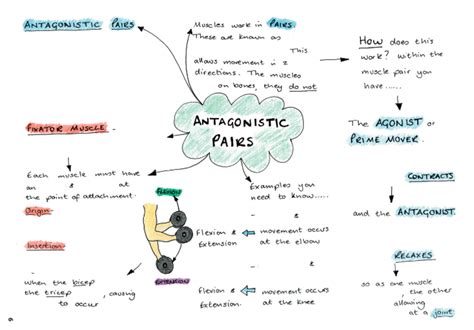 ANTAGONISTIC PAIRS
Muscles work in PAIRS
These are known as
This
allows movement in 2
directions. The muscles
on bones, they do not
HOW does this
work? Within the
muscle pair you
have......
The AGONIST or
PRIME MOVER.
CONTRACTS
and the ANTAGONIST.
RELAXES
so as one muscle
, the other
allowing
at a joint
ANTAGONISTIC
PAIRS
FIXATOR MUSCLE -
Each muscle must have
an & at
the point of attachment.
Origin
-
Insertion
-
when the bicep
the tricep , causing
to occur
FLEXION
EXTENSION
Examples you
need to know.....
- &
-
Flexion & movement occurs
Extension at the elbow
- &
-
Flexion & movement occurs
Extension. at the knee